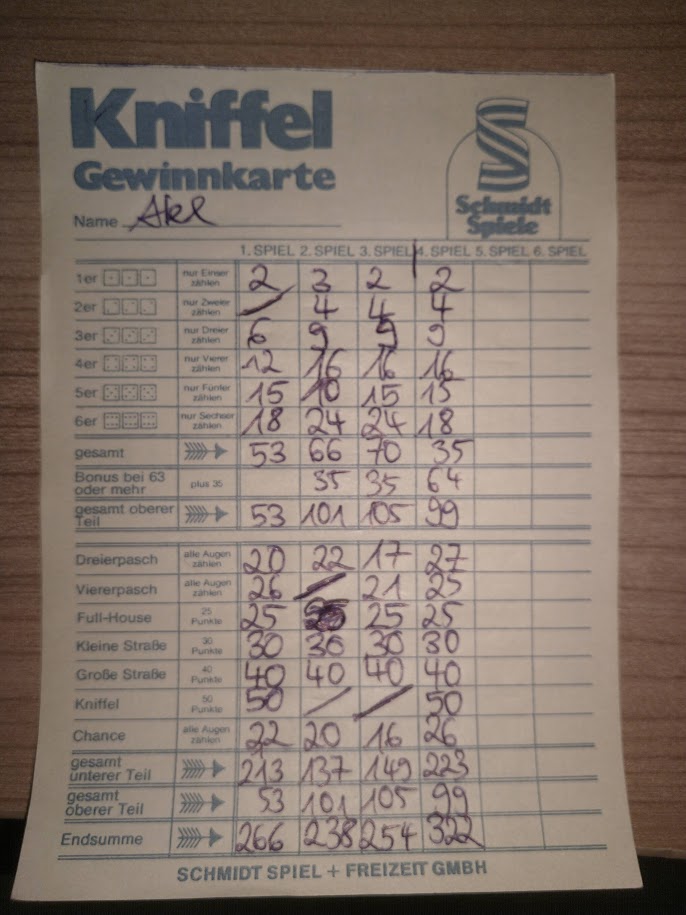 Kniffel
Gewinnkarte
Schmidt
Spiele
Name Akl
1. SPIEL 2. SPIEL 3. SPIEL 4. SPIEL 5. SPIEL 6. SPIEL
1er nur Einser zählen 2 3 2 2
2er nur Zweier zählen / 4 4 4
3er nur Dreier zählen 6 9 9 9
4er nur Vierer zählen 12 16 16 16
5er nur Fünfer zählen 15 10 15 15
6er nur Sechser zählen 18 24 24 18
gesamt 53 66 70 35
Bonus bei 63 oder mehr plus 35 35 35 64
gesamt oberer Teil 53 101 105 99
Dreierpasch alle Augen zählen 20 22 17 27
Viererpasch alle Augen zählen 26 / 21 25
Full-House 25 Punkte 25 25 25 25
Kleine Straße 30 Punkte 30 30 30 30
Große Straße 40 Punkte 40 40 40 40
Kniffel 50 Punkte 50 / / 50
Chance alle Augen zählen 22 20 16 26
gesamt unterer Teil 213 137 149 223
gesamt oberer Teil 53 101 105 99
Endsumme 266 238 254 322
SCHMIDT SPIEL + FREIZEIT GMBH